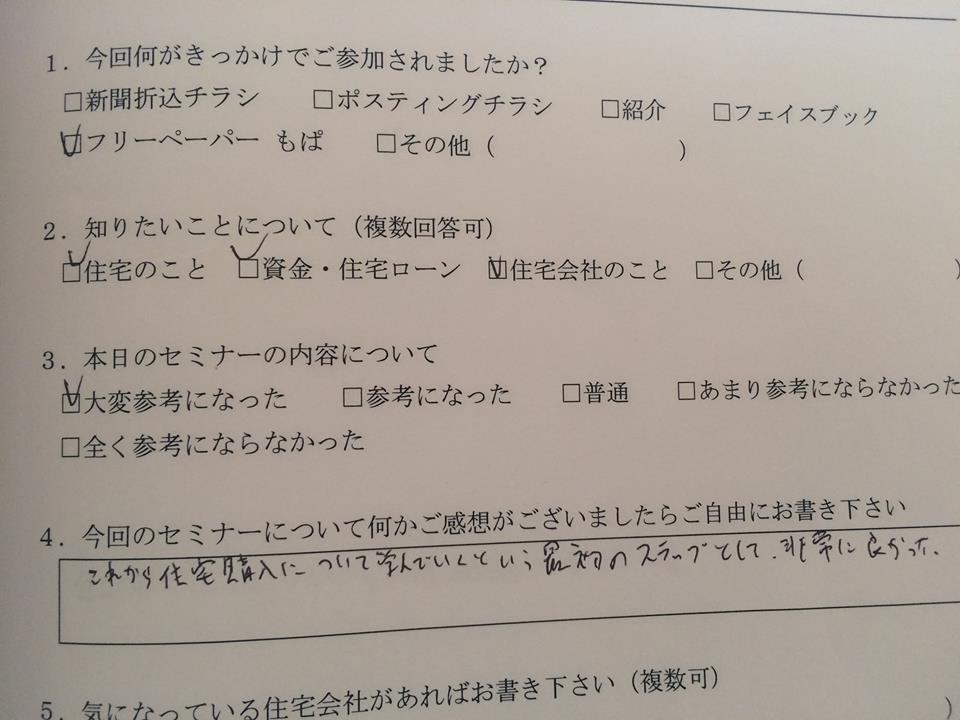 1. 今回何がきっかけでご参加されましたか？
□新聞折込チラシ □ポスティングチラシ □紹介 □フェイスブック
☑フリーペーパー もぱ □その他（ ）
2. 知りたいことについて（複数回答可）
☑住宅のこと ☑資金・住宅ローン ☑住宅会社のこと □その他（ ）
3. 本日のセミナーの内容について
☑大変参考になった □参考になった □普通 □あまり参考にならなかった
□全く参考にならなかった
4. 今回のセミナーについて何かご感想がございましたらご自由にお書き下さい
これから住宅購入について学んでいくという最初のステップとして、非常に良かった。
5. 気になっている住宅会社があればお書き下さい（複数可）
）